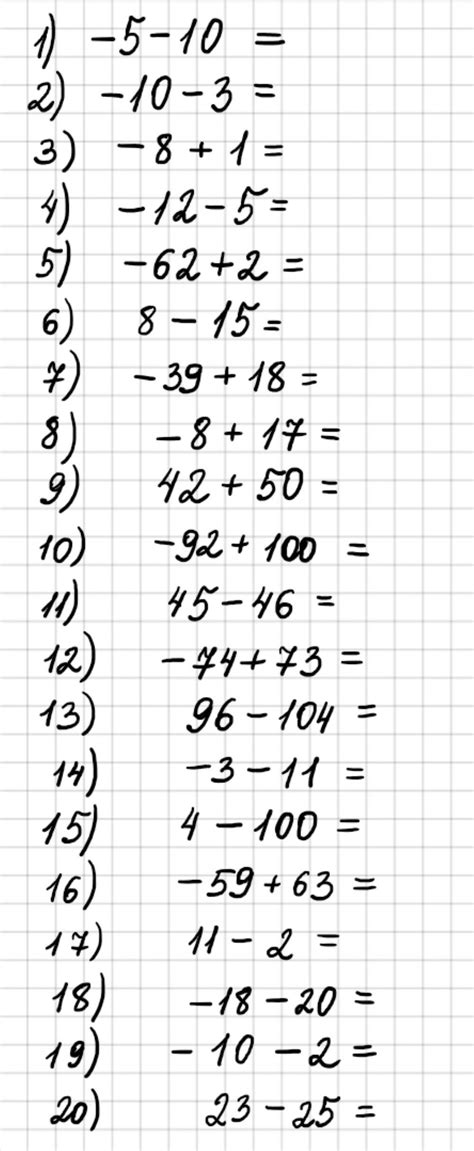 1) -5-10 =
2) -10-3 =
3) -8+1=
4) -12-5=
5) -62+2=
6) 8-15=
7) -39+18=
8) -8+17=
9) 42+50=
10) -92+100 =
11) 45-46 =
12) -74+73=
13) 96-104 =
14) -3-11 =
15) 4-100 =
16) -59+63=
17) 11-2 =
18) -18-20=
19) -10-2=
20) 23-25=